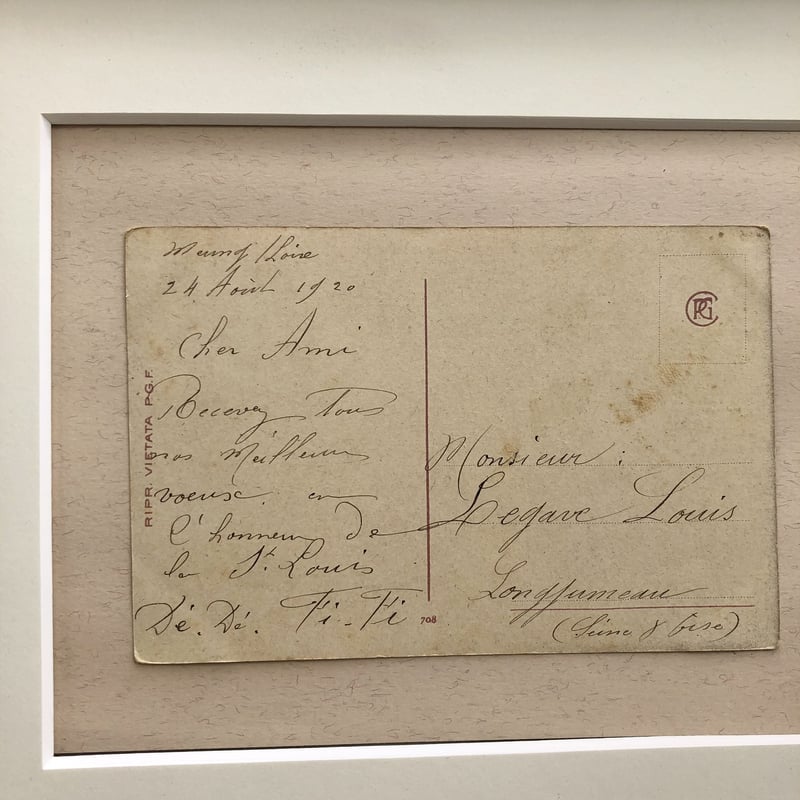 Meung s/Loire
24 Août 1920
Cher Ami
Recevez Tous
nos Meilleurs
voeux en
l'honneur De
la St Louis
Dé. Dé. Fi-Fi
RIPR. VIETATA P.G.F.
708
PG
Monsieur :
Legave Louis
Longjumeau
(Seine & Oise)